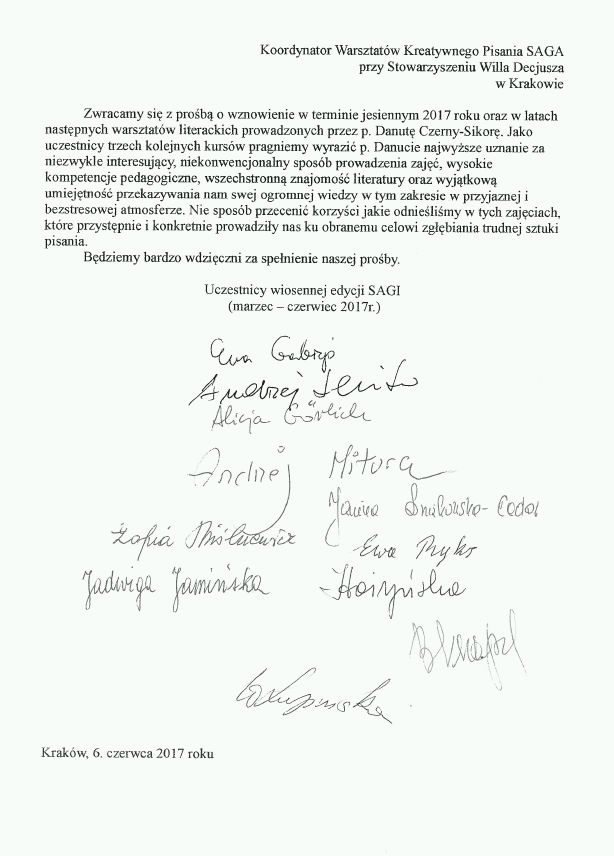 Koordynator Warsztatów Kreatywnego Pisania SAGA
przy Stowarzyszeniu Willa Decjusza
w Krakowie
Zwracamy się z prośbą o wznowienie w terminie jesiennym 2017 roku oraz w latach
następnych warsztatów literackich prowadzonych przez p. Danutę Czerny-Sikorę. Jako
uczestnicy trzech kolejnych kursów pragniemy wyrazić p. Danucie najwyższe uznanie za
niezwykle interesujący, niekonwencjonalny sposób prowadzenia zajęć, wysokie
kompetencje pedagogiczne, wszechstronną znajomość literatury oraz wyjątkową
umiejętność przekazywania nam swej ogromnej wiedzy w tym zakresie w przyjaznej i
bezstresowej atmosferze. Nie sposób przecenić korzyści jakie odnieśliśmy w tych zajęciach,
które przystępnie i konkretnie prowadziły nas ku obranemu celowi zgłębiania trudnej sztuki
pisania.
Będziemy bardzo wdzięczni za spełnienie naszej prośby.
Uczestnicy wiosennej edycji SAGI
(marzec – czerwiec 2017r.)
Ewa
Andrzej
Alicja Görlich
Andrzej Mitura
Janina
Zofia
Ewa
Jadwiga Jamińska
Kraków, 6. czerwca 2017 roku